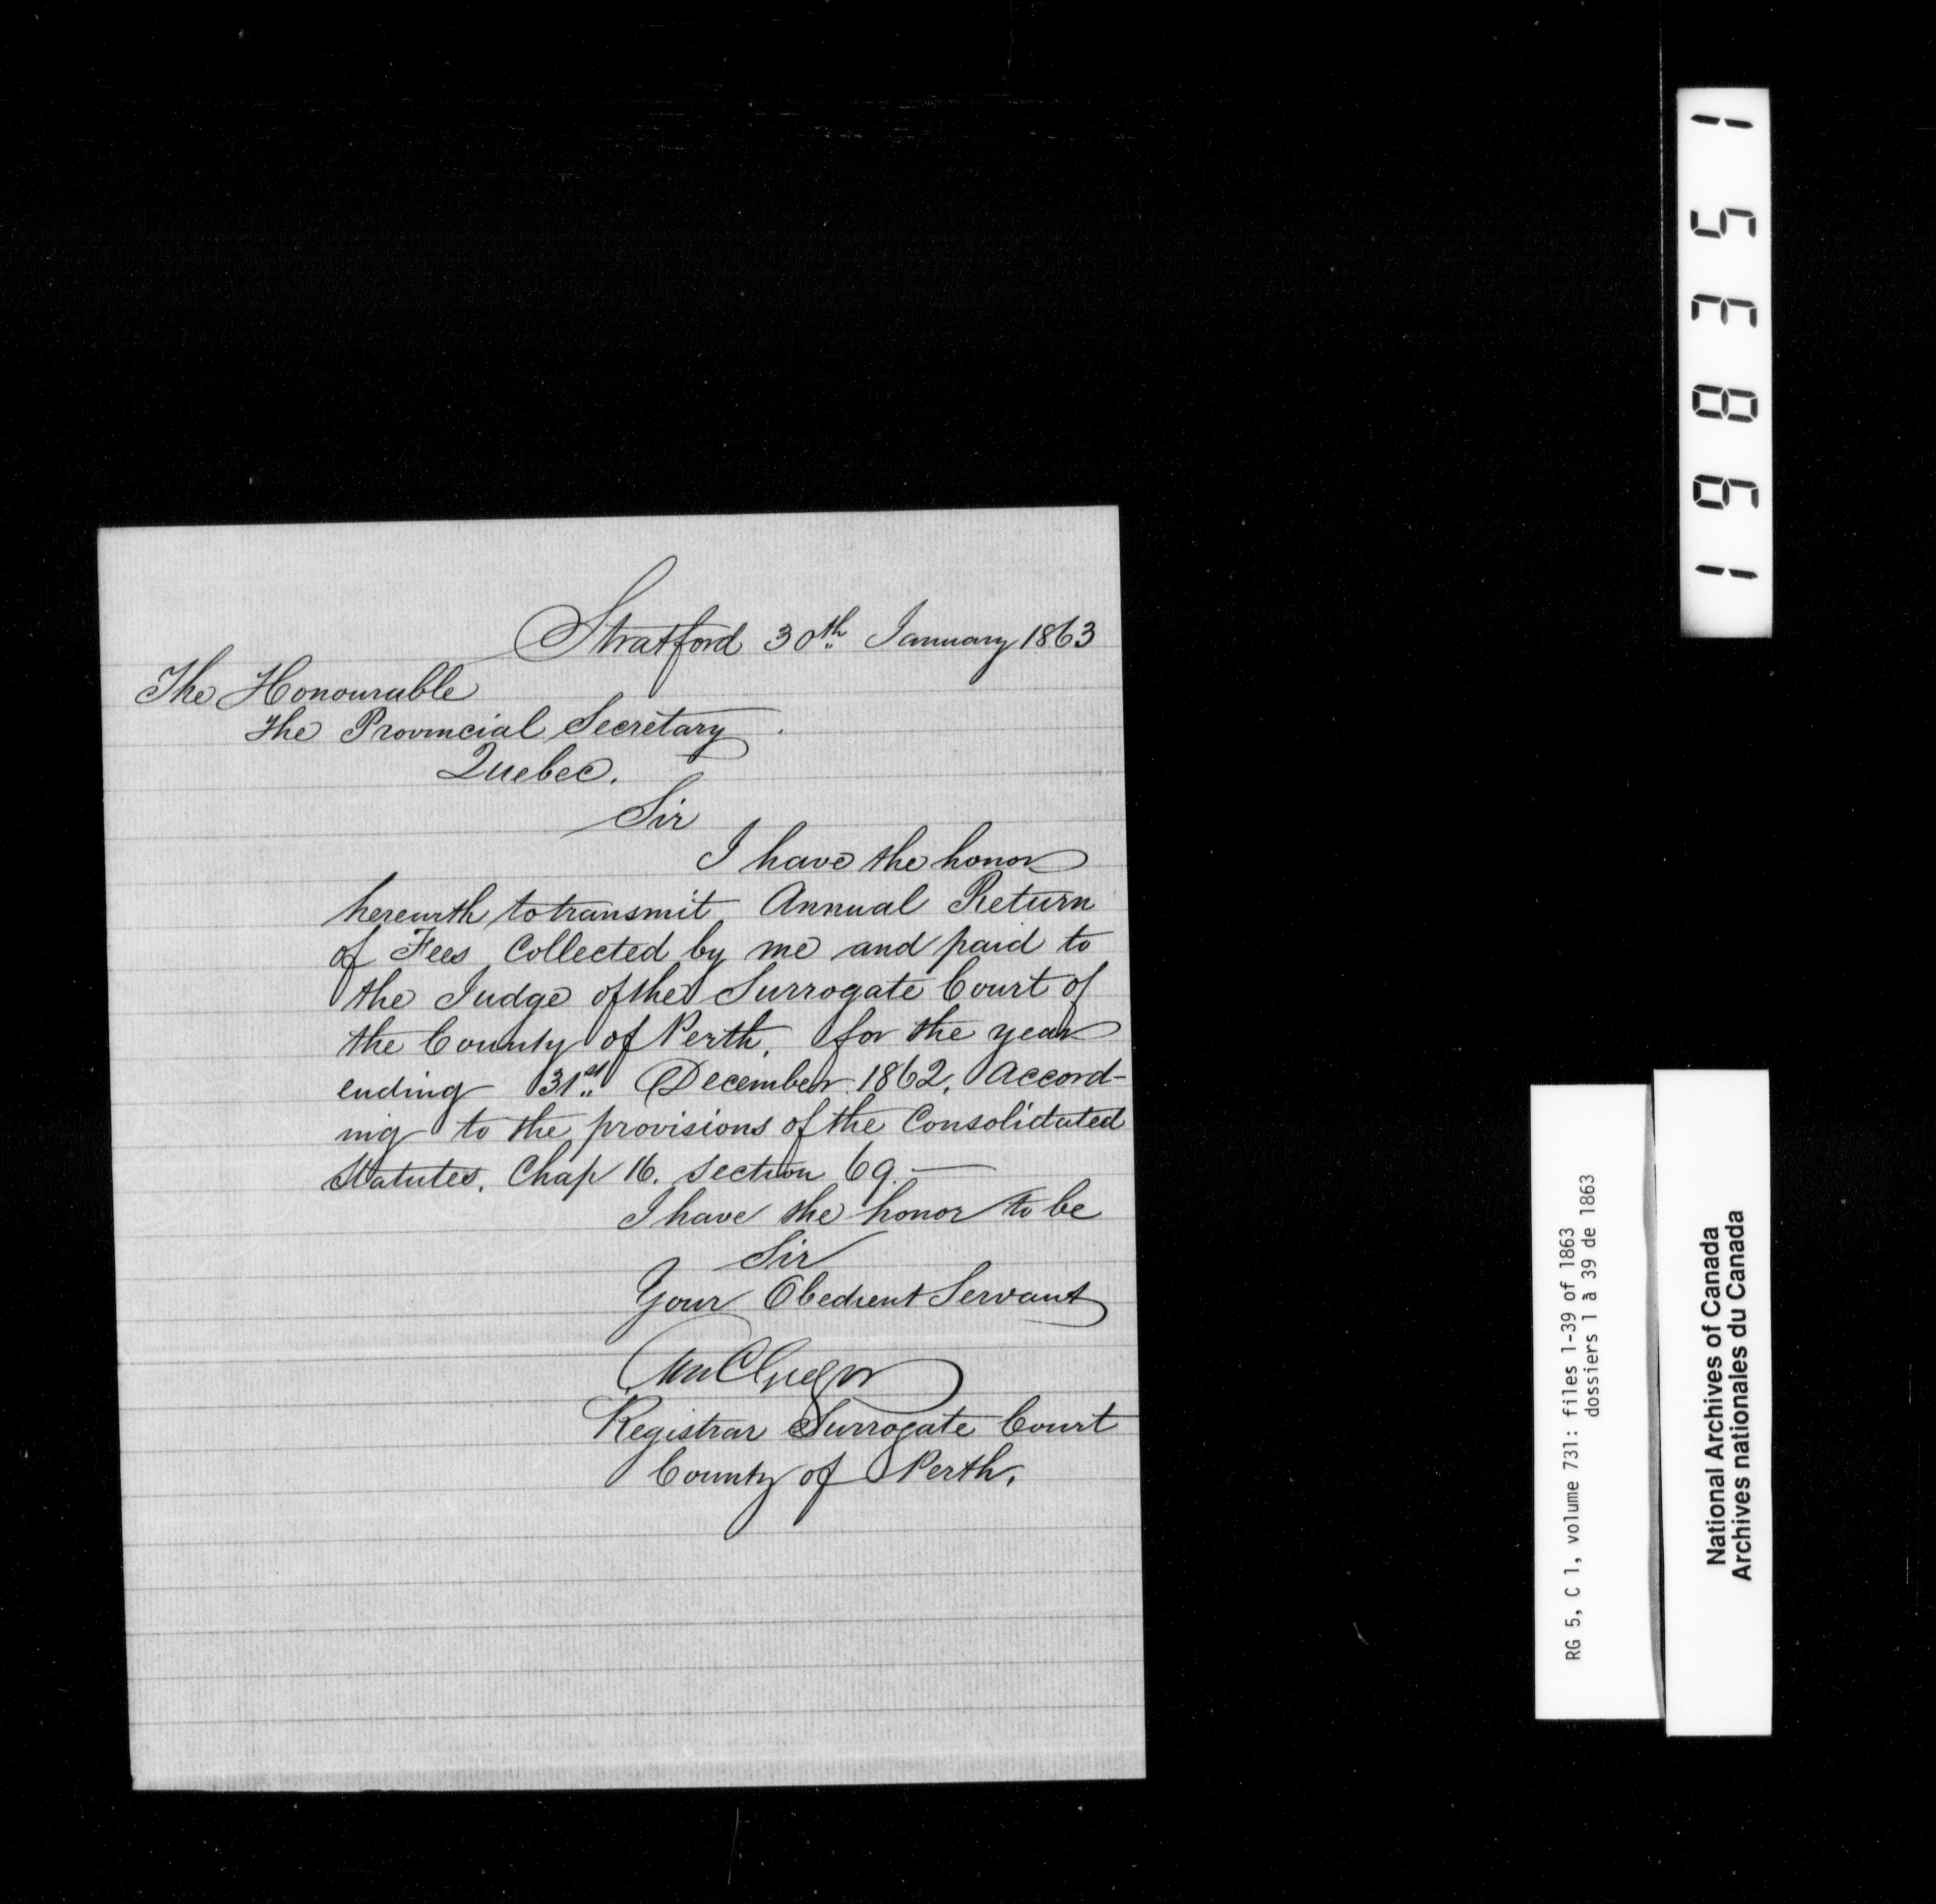 Stratford 30th January 1863
The Honourable
the Provincial Secretary.
Quebec.
Sir
I have the honor
herewith to transmit, Annual Return
of Fees, Collected by me and paid to
the Judge of the Surrogate Court of
the County of Perth, for the year
ending 31st December 1862, Accord-
ing to the provisions of the Consolidated
Statutes, Chap 16. Section 69.—
I have the honor to be
Sir
Your Obedient Servant
Registrar Surrogate Court
County of Perth.
198351
RG 5, C 1, volume 731: files 1-39 of 1863
dossiers 1 à 39 de 1863
National Archives of Canada
Archives nationales du Canada